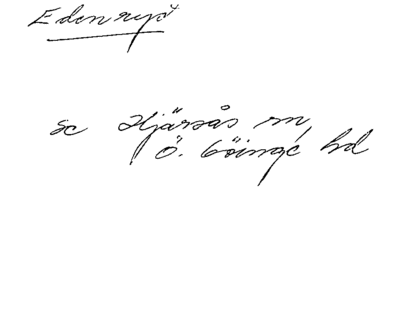 Edenryd
sc Hjärsås sn,
Ö. Göinge hd